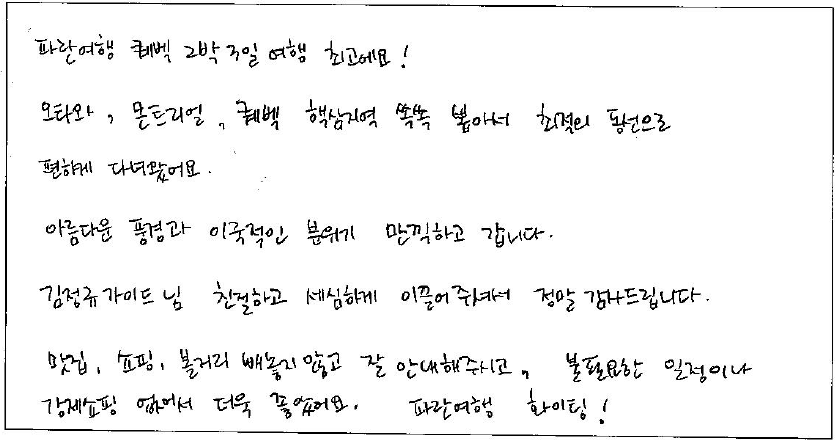 파란여행 퀘벡 2박 3일 여행 최고에요!
오타와, 몬트리얼, 퀘벡 핵심지역 쏙쏙 뽑아서 최적의 동선으로
편하게 다녀왔어요.
아름다운 풍경과 이국적인 분위기 만끽하고 갑니다.
김정규가이드님 친절하고 세심하게 이끌어주셔서 정말 감사드립니다.
맛집, 쇼핑, 볼거리 빼놓지 않고 잘 안내해주시고, 불필요한 일정이나
강제쇼핑 없어서 더욱 좋았어요. 파란여행 화이팅!